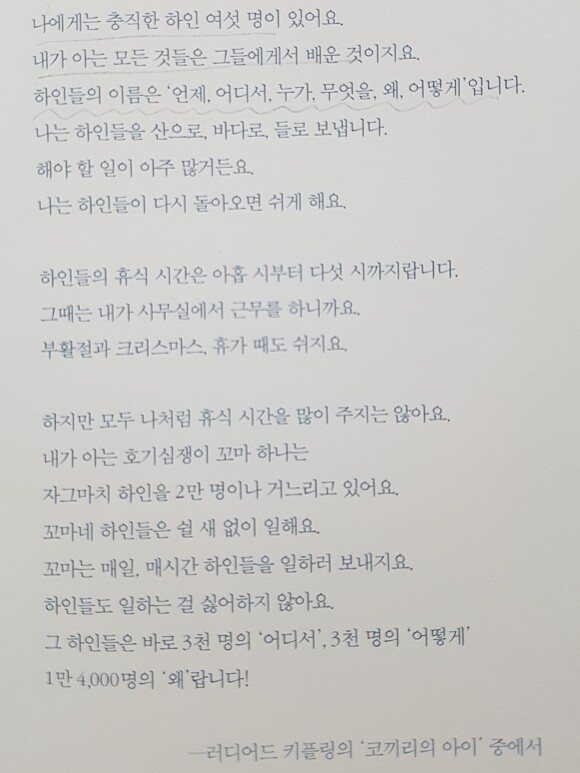 나에게는 충직한 하인 여섯 명이 있어요.
내가 아는 모든 것들은 그들에게서 배운 것이지요.
하인들의 이름은 ‘언제, 어디서, 누가, 무엇을, 왜, 어떻게’입니다.
나는 하인들을 산으로, 바다로, 들로 보냅니다.
해야 할 일이 아주 많거든요.
나는 하인들이 다시 돌아오면 쉬게 해요.
하인들의 휴식 시간은 아홉 시부터 다섯 시까지랍니다.
그때는 내가 사무실에서 근무를 하니까요.
부활절과 크리스마스, 휴가 때도 쉬지요.
하지만 모두 나처럼 휴식 시간을 많이 주지는 않아요.
내가 아는 호기심쟁이 꼬마 하나는
자그마치 하인을 2만 명이나 거느리고 있어요.
꼬마네 하인들은 쉴 새 없이 일해요.
꼬마는 매일, 매시간 하인들을 일하러 보내지요.
하인들도 일하는 걸 싫어하지 않아요.
그 하인들은 바로 3천 명의 ‘어디서’, 3천 명의 ‘어떻게’
1만 4,000명의 ‘왜’랍니다!
—러디어드 키플링의 ‘코끼리의 아이’ 중에서